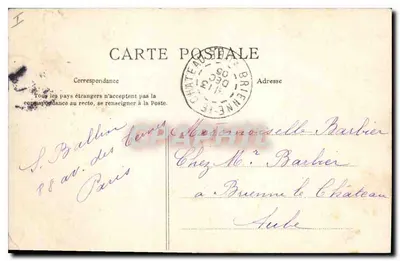 I
CARTE POSTALE
Correspondance
Adresse
Tous les pays étrangers n'acceptent pas la
correspondance au recto, se renseigner à la Poste.
BRIENNE-LE-CHATEAU
DEC
05
S. Ballin
88 av. des Ternes
Paris
Mademoiselle Barbier
Chez Mr Barbier
a Brienne le Château
Aube